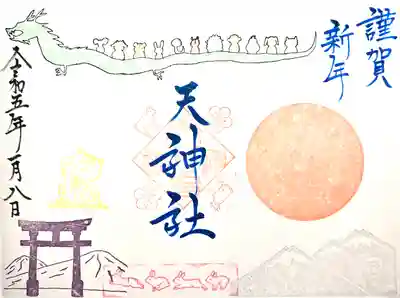 謹賀
新年
天神社
令和五年一月八日